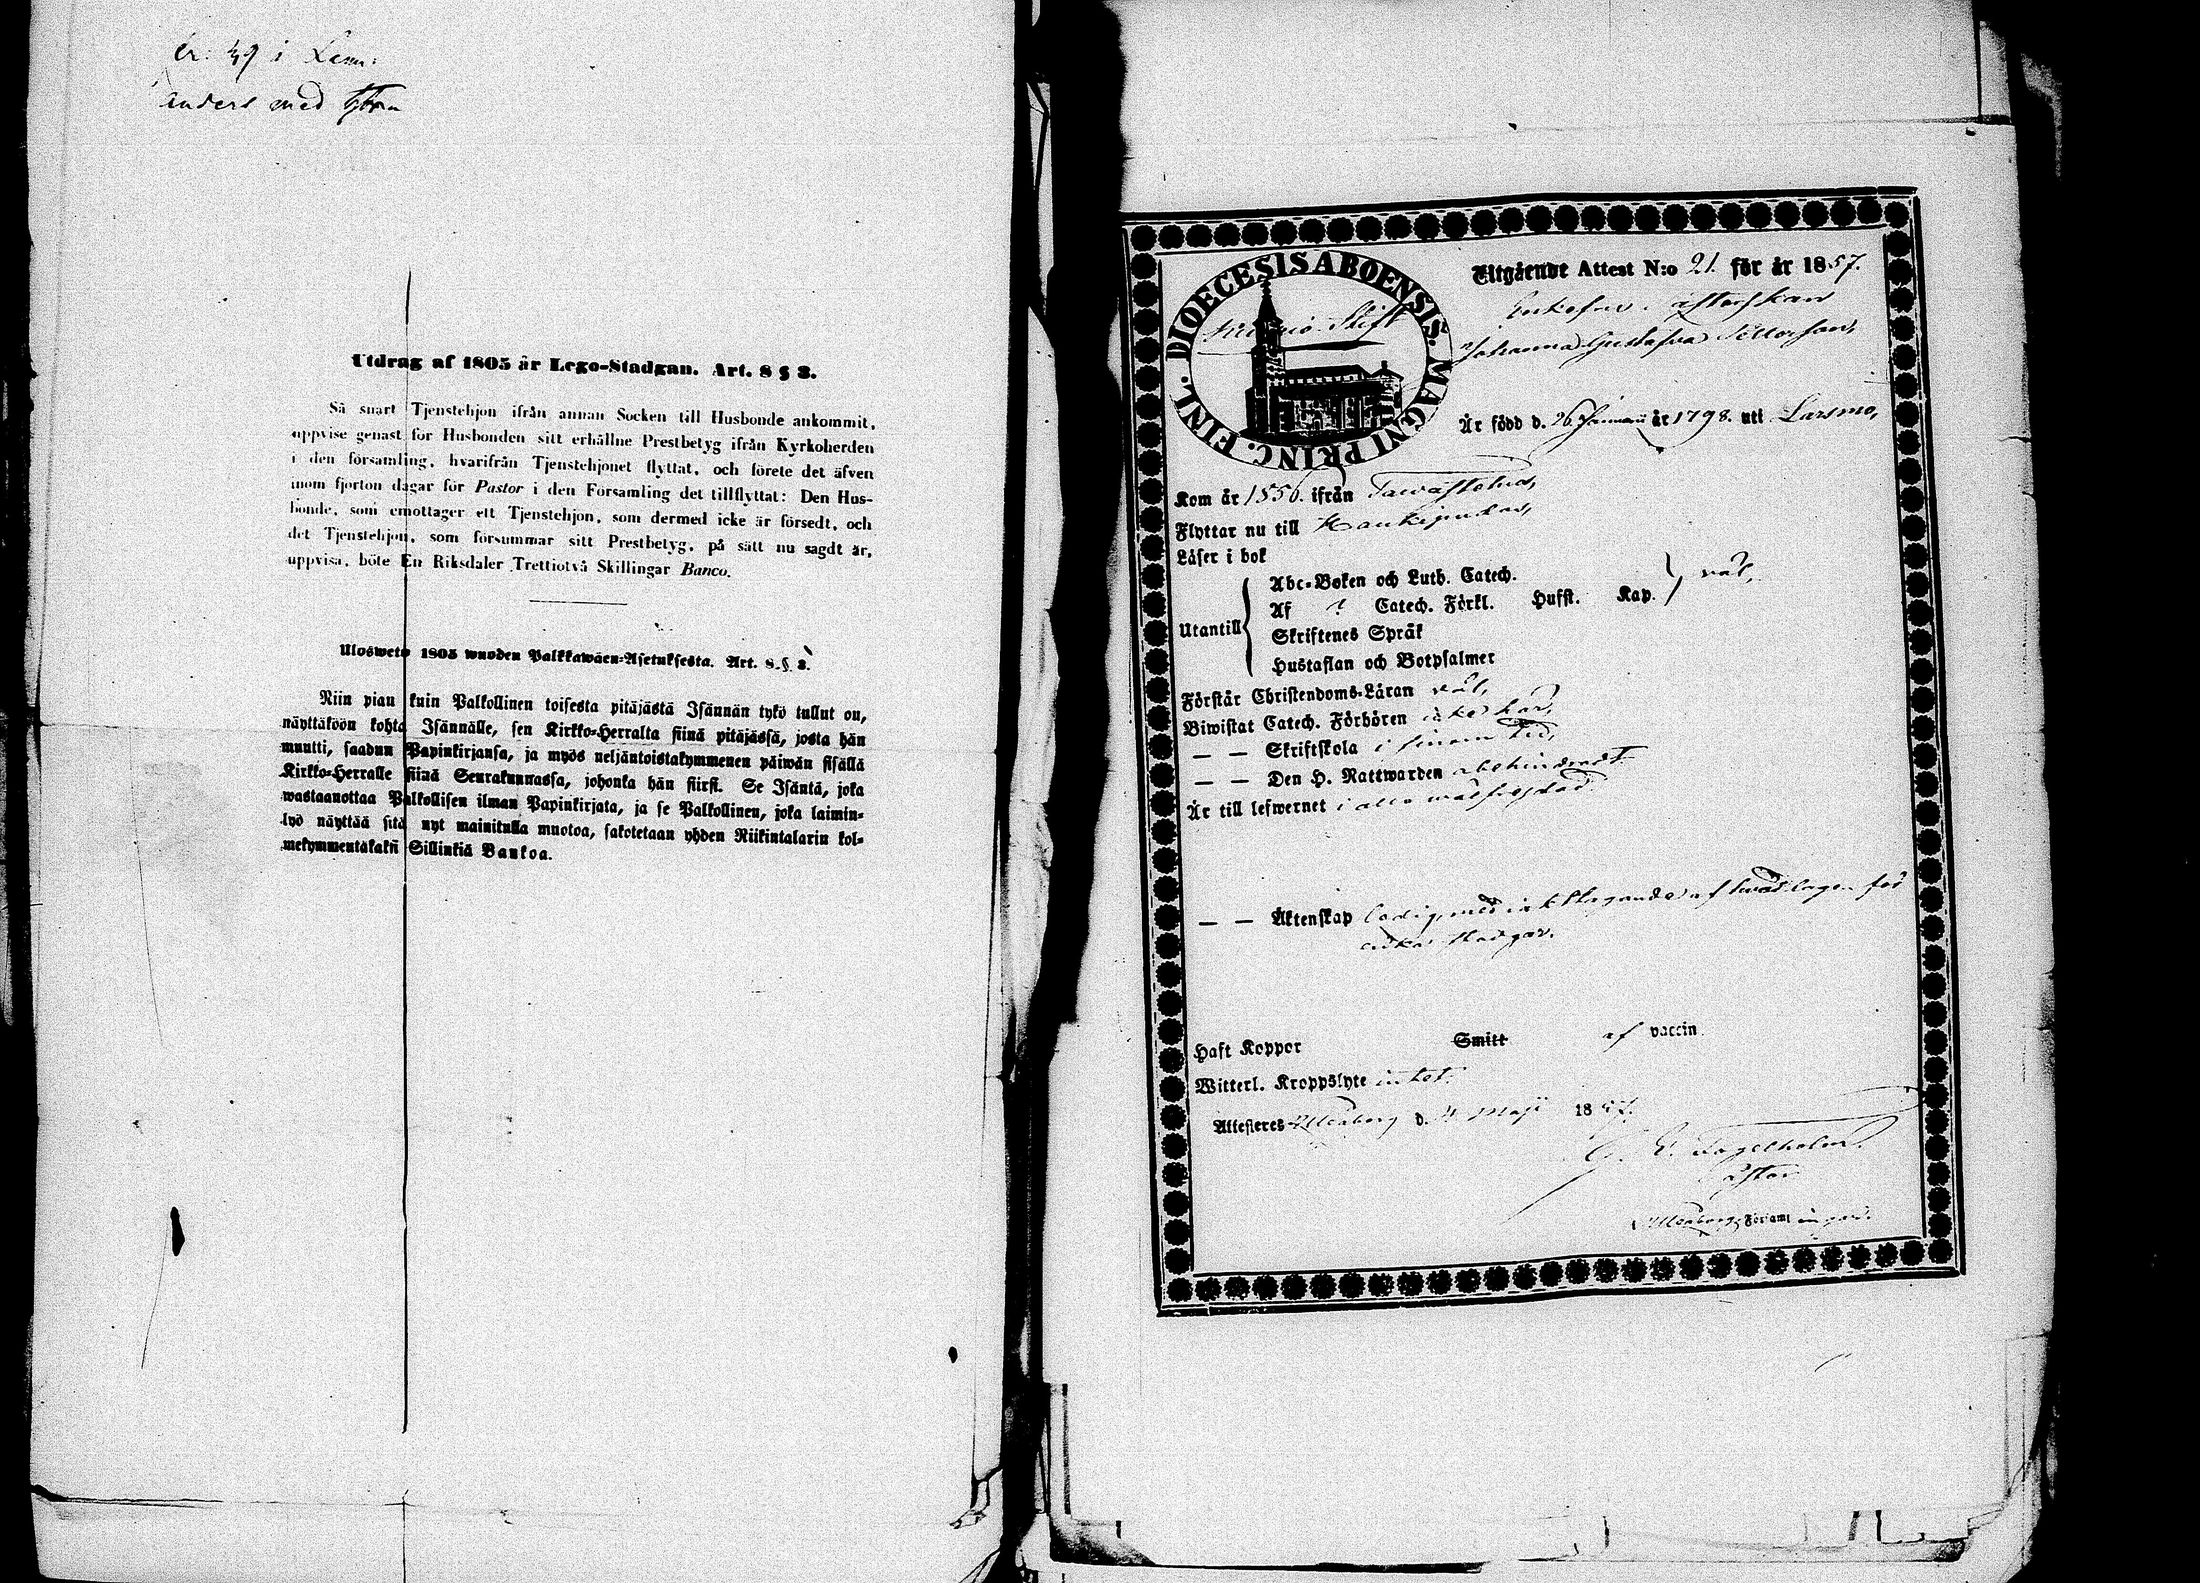 49 i
anders med
Utdrag af 1805 år Lego-Stadgan. Art. 8 § 3.
Så snart Tjenstehjon ifrån annan Socken till Husbonde ankommit,
uppvise genast for Husbonden sitt erhållne Prestbetyg ifrån Kyrkoherden
i den församling, hvarifrån Tjenstehjonet flyttat, och förete det äfven
inom fjorton dagar for Pastor i den Församling det tillflyttat: Den Hus-
bonde, som emottager ett Tjenstehjon, som dermed icke är försedt, och
det Tjenstehjon, som försummar sitt Prestbetyg, på sätt nu sagdt är,
uppvisa, böte En Riksdaler Trettiotvå Skillingar Banco.
Ulosweto 1805 wuoden Palkkawäen-Asetuksesta. Art. 8. §. 3.
Niin pian kuin Palkollinen toisesta pitäjästä Isännän tykö tullut on,
näyttäköön kohta Isännälle, sen Kirkko-Herralta siinä pitäjässä, josta hän
muutti, saadun Papinkirjansa, ja myös neljäntoistakymmenen päiwän sisällä
Kirkko-Herralle siinä Seurakunnassa, johonka hän siirsi. Se Isäntä, joka
wastaanottaa Palkollisen ilman Papinkirjata, ja se Palkollinen, joka laimin-
lyö näyttää sitä nyt mainitulla muotoa, sakotetaan yhden Riikintalarin kol-
mekymmentäkaksi Sillinkiä Bankoa.
DIOECESIS ABOENSIS. MAGNI PRINC. FINL.
Kuopio Stift
Utgående Attest N:o 21. för år 1857.
Enkefru Pastorskan
Johanna Gustafva
Är född d. 26 Januarii år 1798. uti Larsmo,
Kom år 1856. ifrån Tawastehus,
Flyttar nu till Haukipudas,
Läser i bok
Abc-Boken och Luth. Catech.
Af ? Catech. Förkl. Husst. Kap. } väl,
Utantill {
Skriftenes Språk
Hustaflan och Botpsalmer
Förstår Christendoms-Läran väl,
Biwistat Catech. Förhören
— — Skriftskola i sinom tid,
— — Den H. Nattwarden obehindradt
Är till lefwernet i allo wälfrejdad
— — Äktenskap ledig, med iakttagande af hwad lagen för
enkor stadgar.
Haft Koppor Smitt af vaccin
Witterl. Kroppslyte intet.
Attesteras Uleåborg d. 4 Maji 1857.
Pastor
Uleåborgs Församl